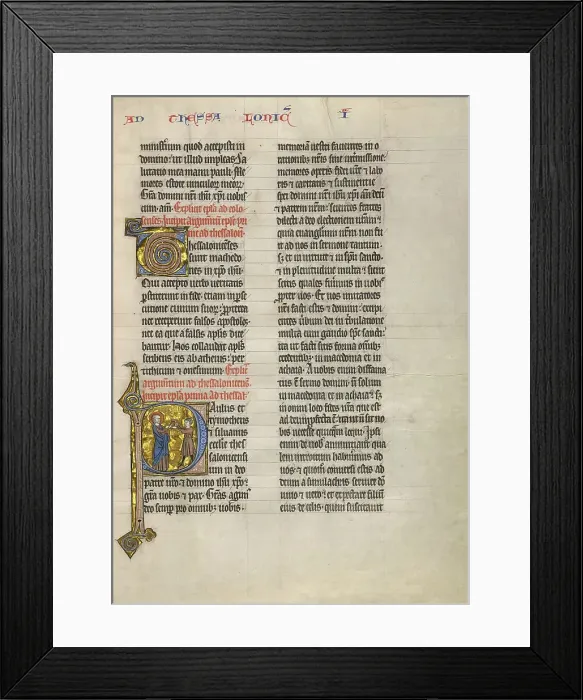 AD THESSALONIC I
ministium quod accepisti in
domino: ut illud impleas. Sa
lutatio mea manu pauli. Me
mores estote vinculor meor.
Gra domini nri ihu xpi vobis
cum. am. Explicit epla ad colo
senses. Incipit argumtu eple pri
me ad thessalon.
Thessalonicenses
sunt machedo
nes in xpo ihu.
Qui accepto verbo veritatis
pstiterunt in fide: etiam in pse
cutione civium suor: pterea
nec receperunt falsos apostolos:
nec ea que a falsis aplis dice
bantur. Hos collaudat apls
scribens eis ab athenis: per
tithicum et onesimum. Explic
argumtum ad thessalonicens.
Incipit epla prima ad thessal.
Paulus et
tymotheus
et silvanus
ecclie thes
salonicensi
um in deo
patre nro et domino ihu xpo:
gra vobis et pax. Gras agim
deo semp pro omnib vobis:
memoria vestri facientes in o
rationib nris sine intmissione.
memores operis fidei vre et labo
ris et caritatis et sustinentie
spei domini nri ihu xpi ante deu
et patrem nrm: scientes fratres
dilecti a deo electionem vram:
quia evangelium nrm non fu
it ad vos in sermone tantum.
s; et in virtute et in spu sancto.
et in plenitudine multa: sicut
scitis quales fuimus in vobis
ppter vos. Et vos imitatores
nri facti estis et domini: excipi
entes vbum dei in tbulatione
multa cum gaudio spc sancti:
ita ut facti sitis forma omnib
credentib in macedonia et in
achaia. A vobis enim diffama
tus e sermo domini. no solum
in macedonia et in achaia: s;
in omni loco fides vra que est
ad deum pfecta e. ita ut n sit no
bis necesse quicqm loqui. Ipsi
enim de vob annuntiant qua
lem introitum habuimus ad
vos: et quom conversi estis ad
deum a simulachris servire do
vivo et vero: et expectare filiu
eius de celis. quem suscitavit